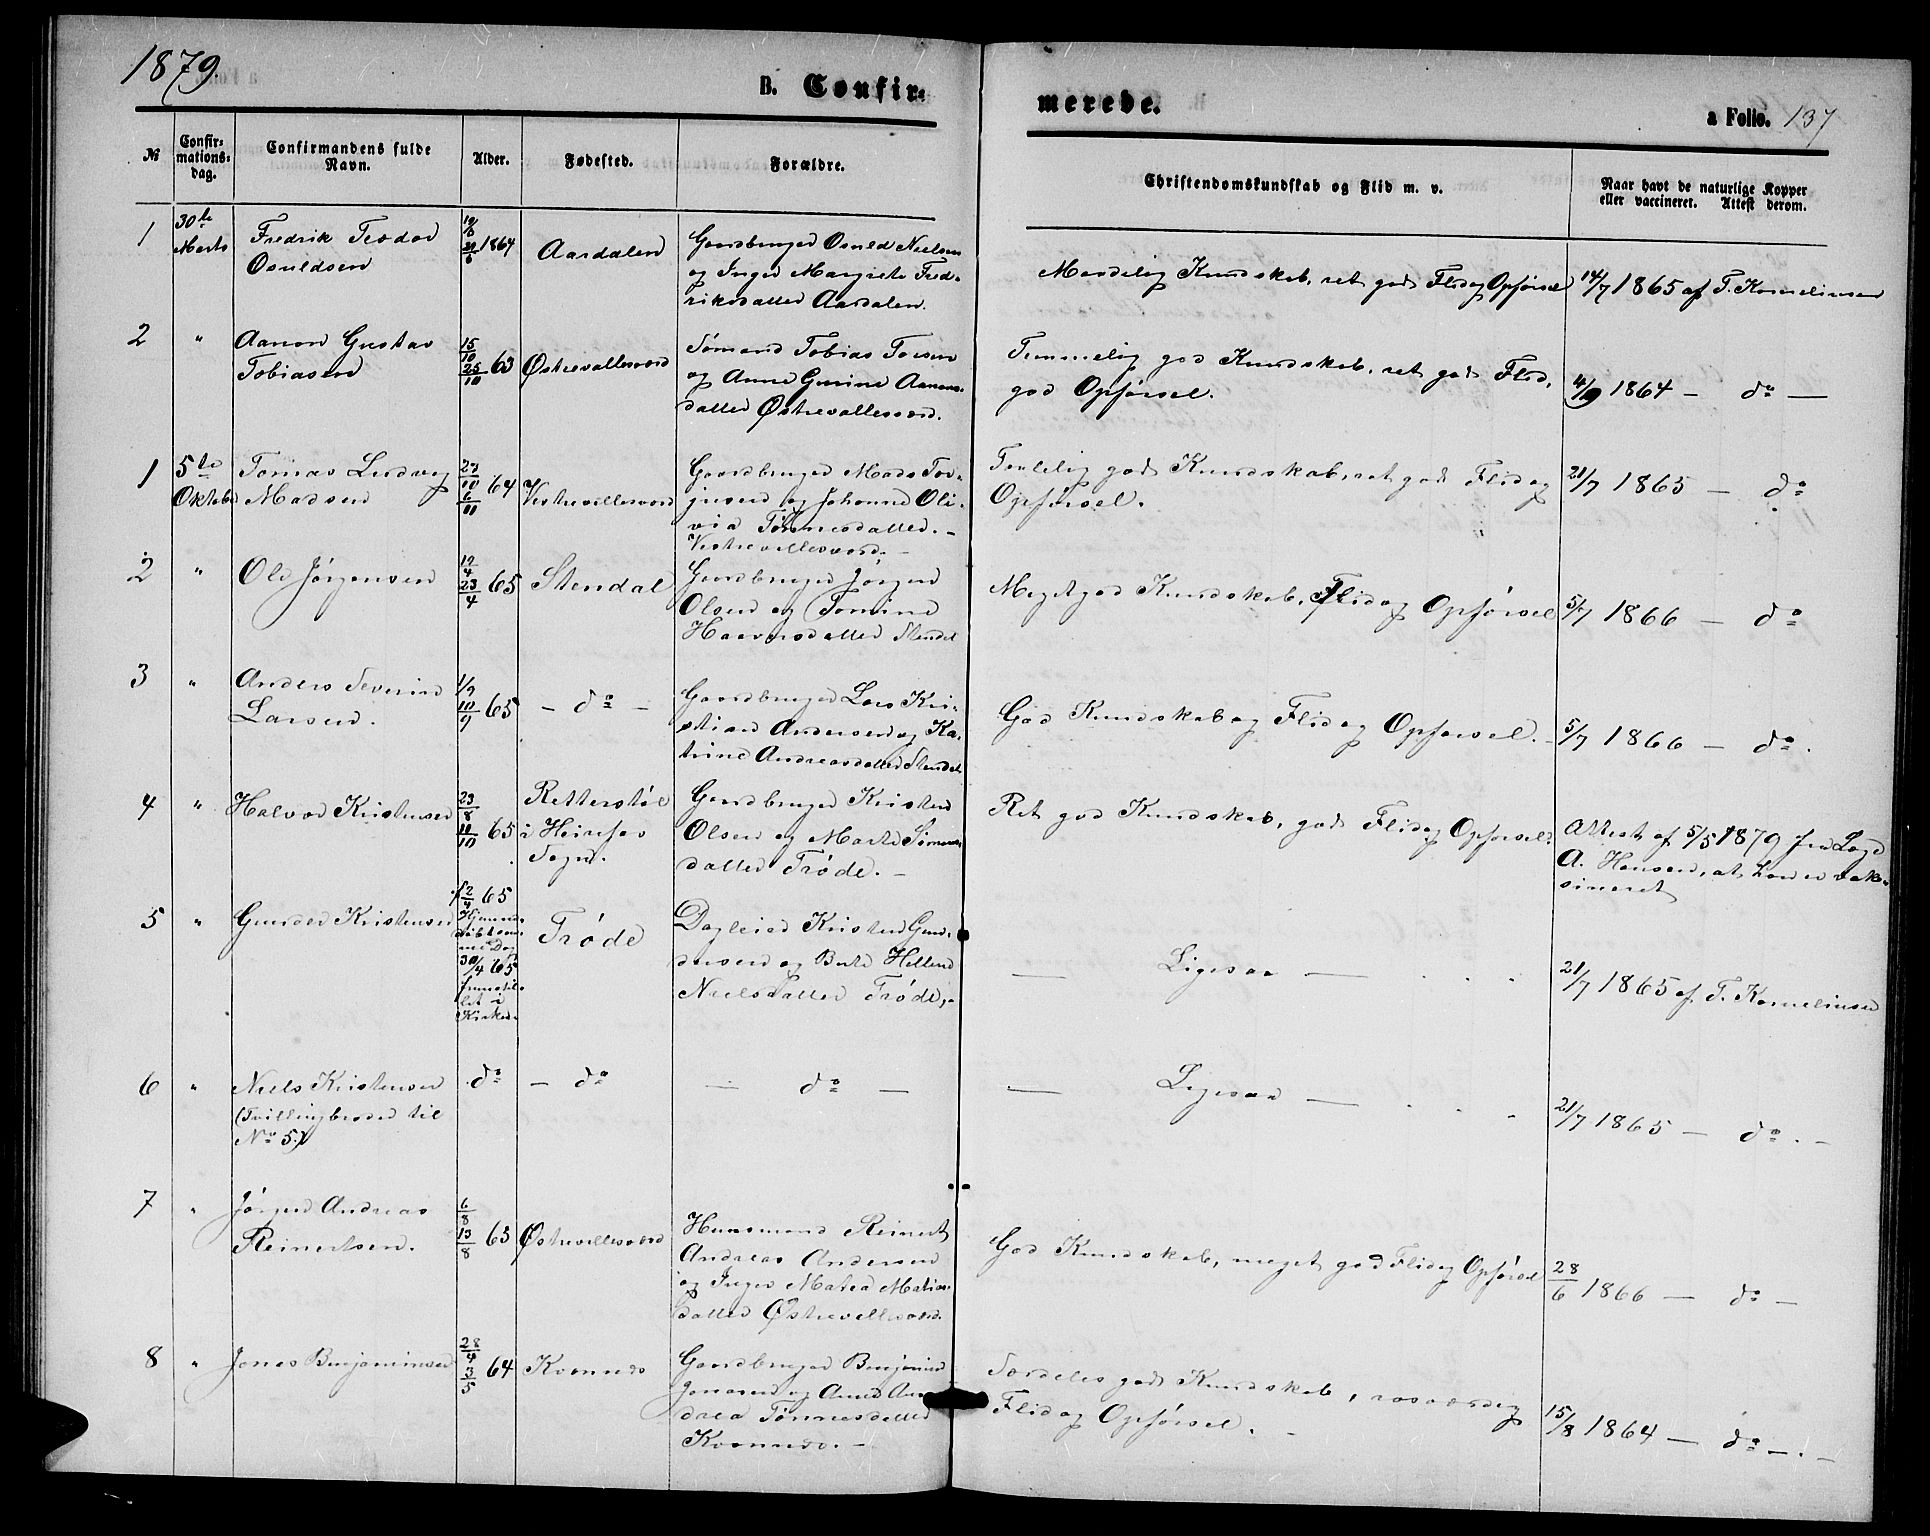 1879.
B. Confir=
merede.
a Folio. 137
№
Confir=
mations=
dag.
Confirmandens fulde
Navn.
Alder.
Fødested.
Forældre.
Christendomskundskab og Flid m. v.
Naar havt de naturlige Kopper
eller vaccineret. Attest derom.
1 30te Marts
Fredrik Teodor
Osuldsen
1864
Aardalen
Gaardbruger Osuld Nielsen
og Inger Margrete Fred-
riksdatter Aardalen.
Maadelig Kundskab, ret god Flid og Opførsel
14/7 1865 af T. Kornelinsen
2 "
Aanon Gustav
Tobiasen
15/10 25/10 63
Østrevallesverd
Sømand Tobias Torsen
og Anne Gurine Aanons-
datter Østrevallesverd.
Temmelig god Kundskab, ret god Flid,
god Opførsel.
4/9 1864 — do —
1 5te Oktober
Tomas Ludvig
Madsen
27/10 6/11 64
Vestrevallesverd
Gaardbruger Mads Tor-
jusen og Johanne Oli-
via Tønnesdatter. -
Vestrevallesverd. -
Temlelig god Kundskab, ret god Flid og
Opførsel.
21/7 1865 — do
2 "
Ole Jørgensen
12/4 23/4 65
Stendal
Gaardbruger Jørgen
Olsen og Tomine
Haaversdatter Stendal
Meget god Kundskab, Flid og Opførsel
5/7 1866 — do
3 "
Anders Severin
Larsen.
1/9 10/9 65
— do —
Gaardbruger Lars Kri-
stian Andersen og Ka-
trine Andreasdatter Stendal
God Kundskab og Flid og Opførsel. -
5/7 1866 — do.
4 "
Halvor Kristensen
23/8 10/10 65
Retterstøl
i Heirefos
Sogn.
Gaardbruger Kristen
Olsen og Marte Simons-
datter Trøde. -
Ret god Kundskab, god Flid og Opførsel.
Attest af 5/5 1879 fra Læge
A. Hansen, at han er vak-
sineret
5 "
Gunder Kristensen
f 2/4 65
Hjemme-
døbt sam-
me Dag
30/4 65
fremstil-
let i
Kirken.
Trøde
Dagleier Kristen Gun-
dersen og Berte Hellene
Nielsdatter Trøde, -
— Ligesaa —
21/7 1865 af T. Kornelinsen
6 "
Niels Kristensen
(Tvillingbroder til
No 5.)
do
— do
— do —
— Ligesaa —
21/7 1865 — do. -
7 "
Jørgen Andreas
Reinertsen.
6/8 13/8 63
Østrevallesverd
Huusmand Reinert
Andreas Andersen
og Inger Matea Matias-
datter Østrevallesverd.
God Kundskab, meget god Flid og Opførsel
28/6 1866 — do —
8 "
Jonas Benjaminsen
28/4 3/5 64
Kvennes
Gaardbruger Benjamin
Jonasen og Anne An-
drea Tønnesdatter
Kvennes. -
Særdeles god Kundskab, rosværdig
Flid og Opførsel. -
15/8 1864 — do —